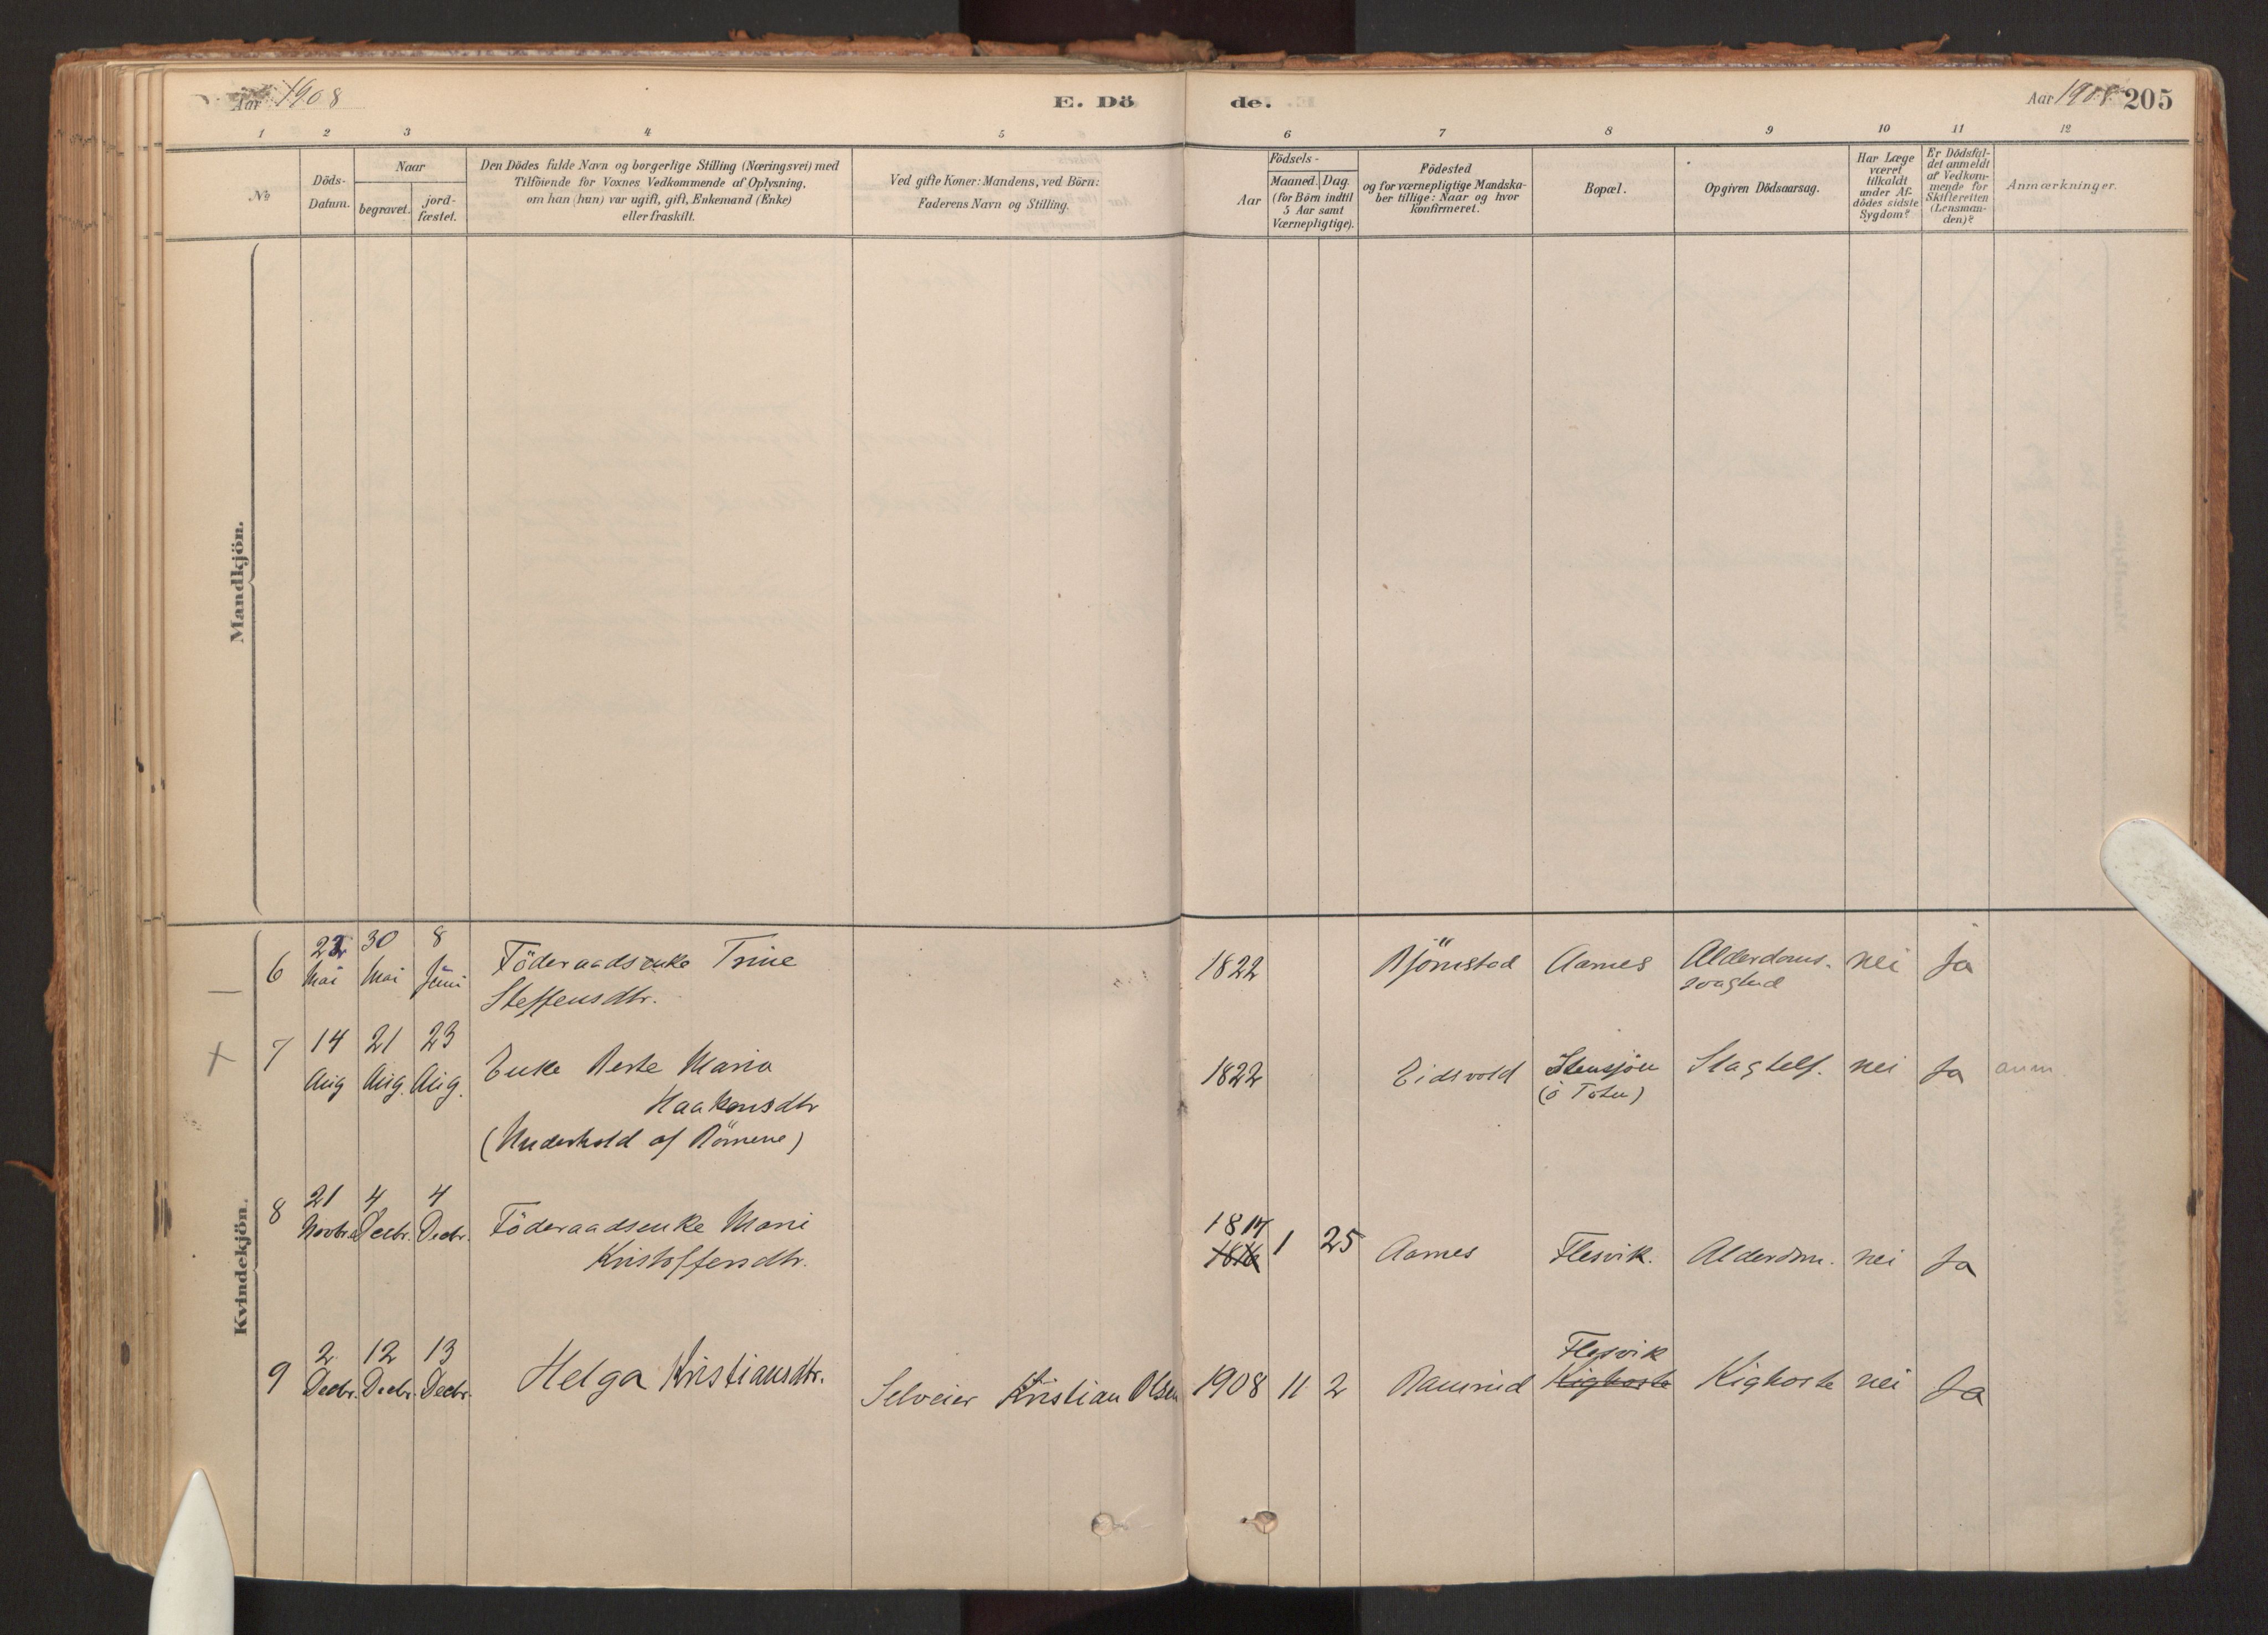 Aar 1908
E. Dö
de.
Aar 1908 205
1 2 3 4 5 6 7 8 9 10 11 12
No
Döds-
Datum.
Naar
begravet.
jord-
fæstet.
Den Dödes fulde Navn og borgerlige Stilling (Næringsvei) med
Tilföiende for Voxnes Vedkommende af Oplysning,
om han (hun) var ugift, gift, Enkemand (Enke)
eller fraskilt.
Ved gifte Koner: Mandens, ved Börn:
Faderens Navn og Stilling.
Födsels-
Aar
Maaned. Dag.
(for Börn indtil
5 Aar samt
Værnepligtige).
Födested
og for værnepligtige Mandska-
ber tillige: Naar og hvor
konfirmeret.
Bopæl.
Opgiven Dödsaarsag.
Har Læge
været
tilkaldt
under Af-
dödes sidste
Sygdom?
Er Dödsfal-
det anmeldt
af Vedkom-
mende for
Skifteretten
(Lensman-
den)?
Anmærkninger.
Mandkjön.
Kvindekjön.
6 22 Mai 30 Mai 8 Juni Föderaadsenke Trine
Steffensdtr.
1822 Björnstad Aarnes Alderdoms-
svaghed
nei Ja
+ 7 14 Aug 21 Aug. 23 Aug. Enke Berte Maria
Haakensdtr
(Underhold af Börnene)
1822 Eidsvold Stensjöen
(ö Toten)
Slagtilf. nei Ja anm.
8 21 Novbr. 4 Decbr. 4 Decbr. Föderaadsenke Marie
Kristoffersdtr.
1817
1816 1 25 Aarnes Flesvik. Alderdom. nei Ja
9 2 Decbr. 12 Decbr. 13 Decbr. Helga Kristiansdtr.
Selveier Kristian Olsen 1908 11 2 Ramrud
Flesvik
Kighoste Kighoste nei Ja